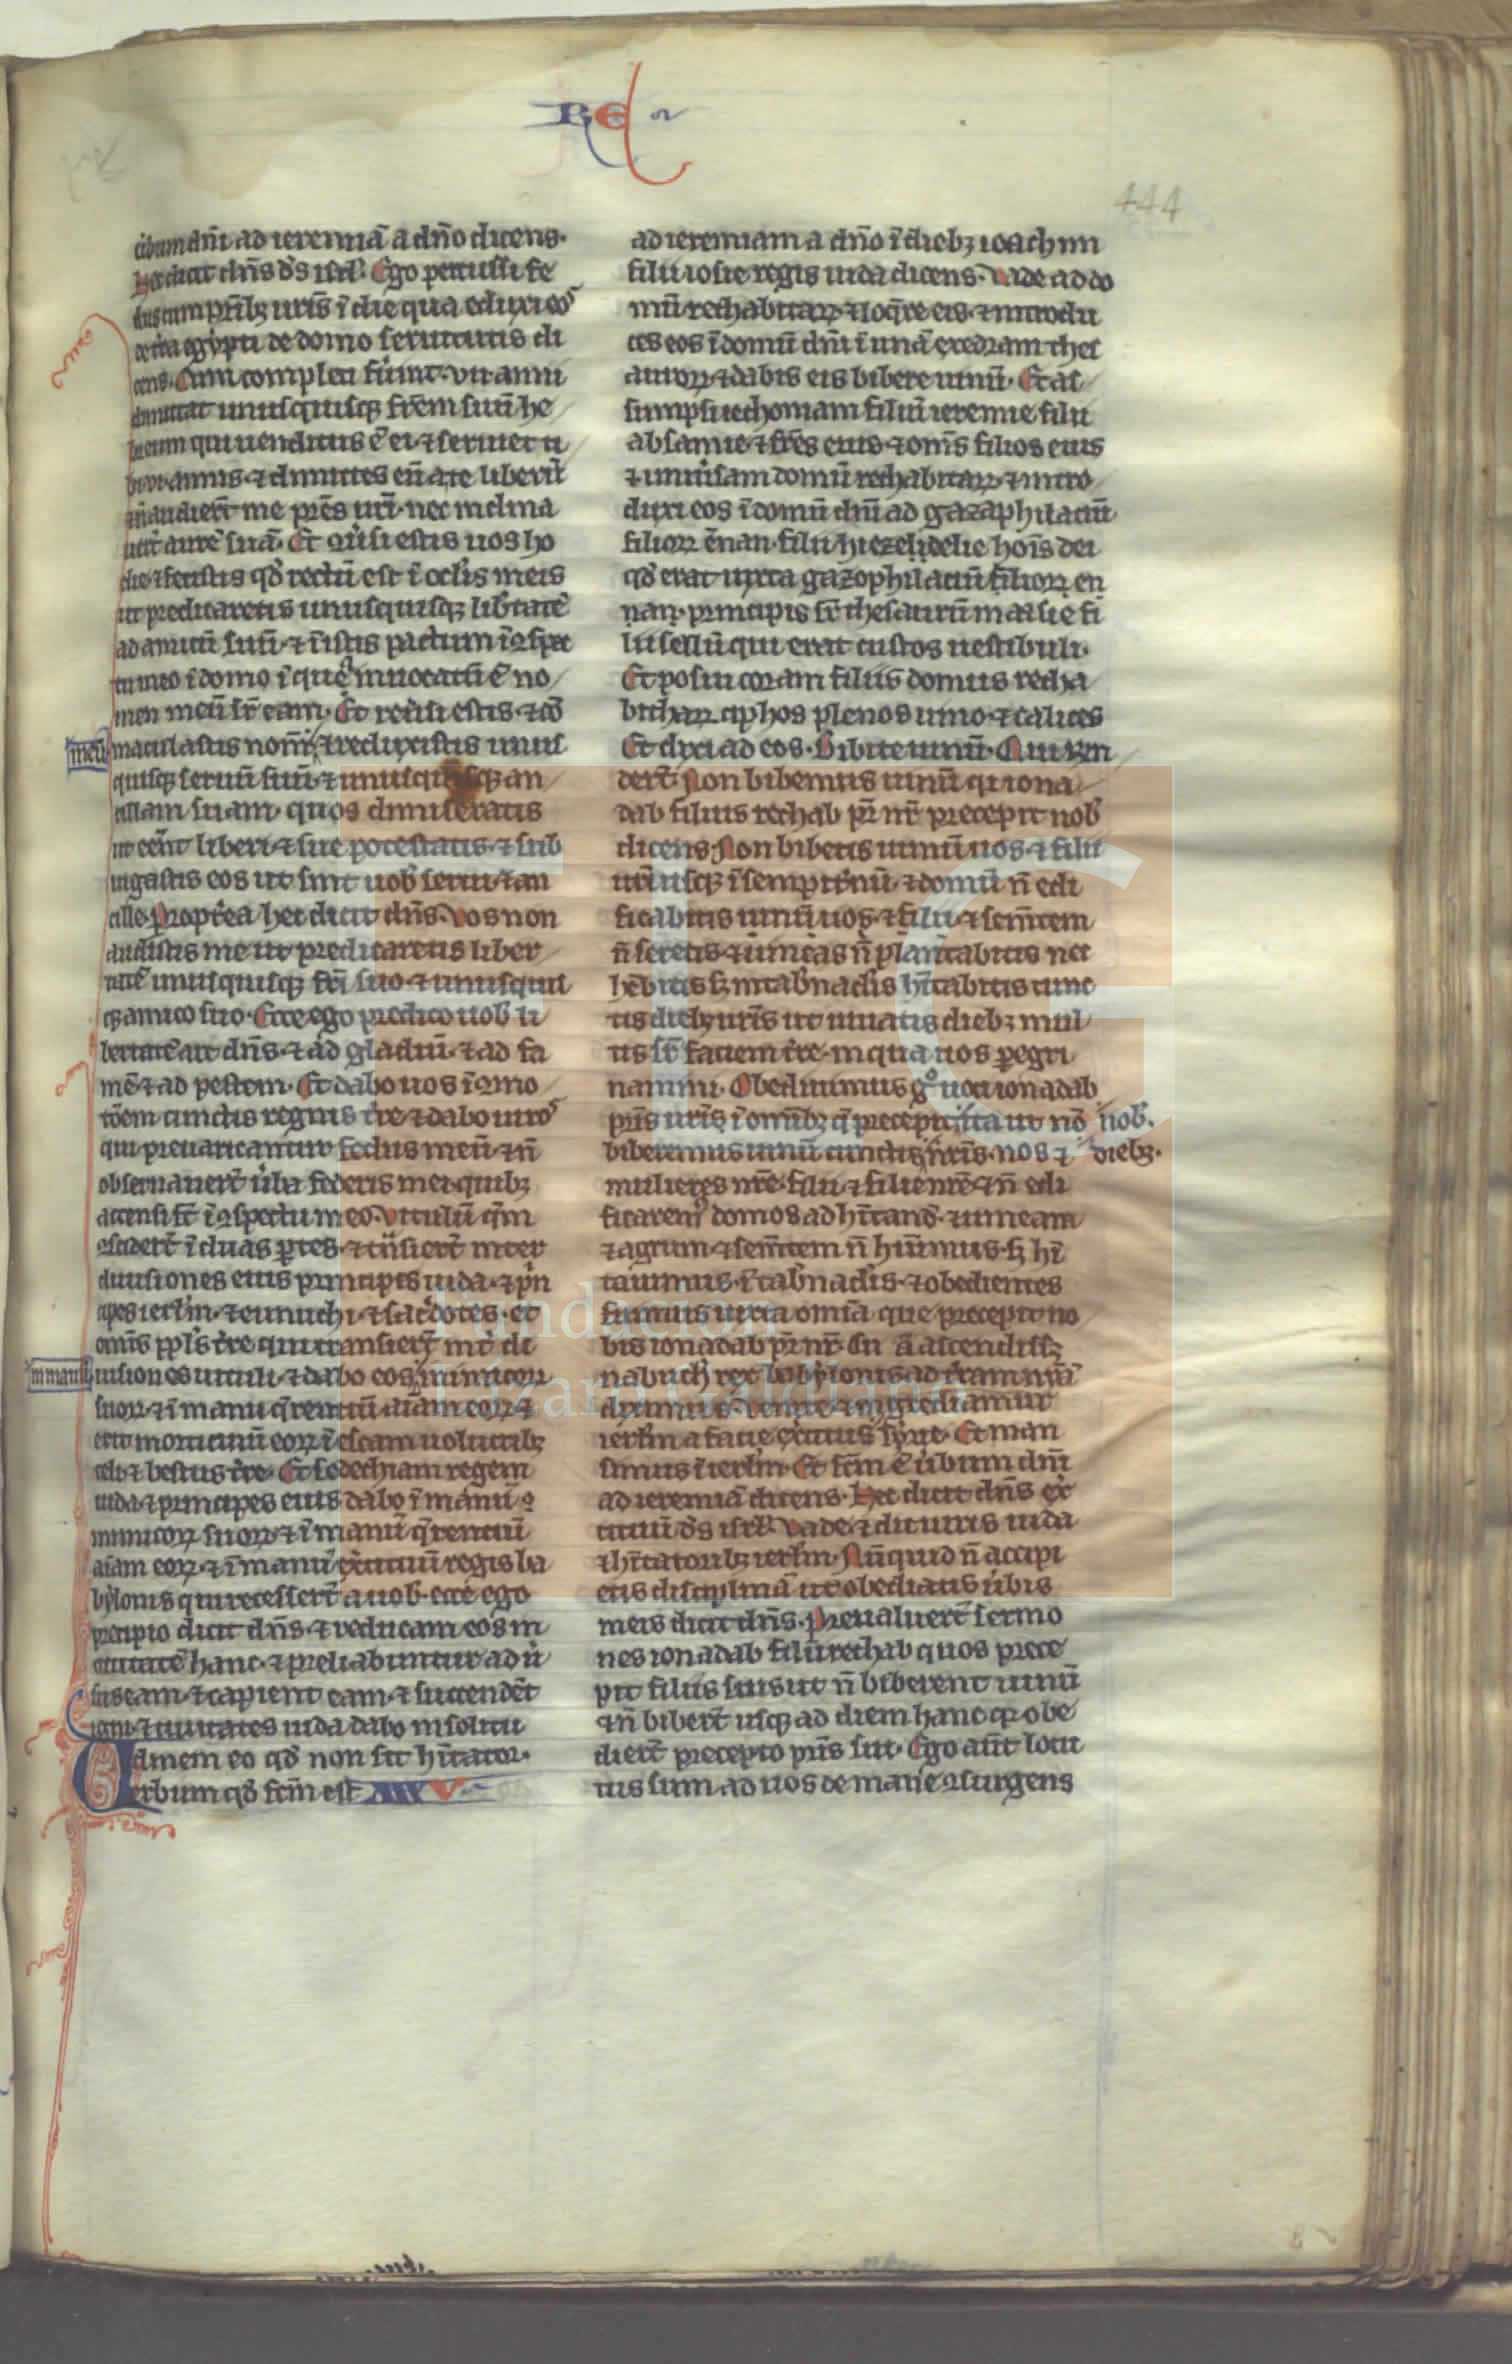 RE
444
ůbum dñi ad ieremiã a dño dicens.
Hec dicit dñs ds isrl. Ego percussi fe
dus cum prĩbꝫ uris ĩ die qua eduxi eos
de tra egypti de domo seruitutis di
cens. Cum completi fuint .vii. anni
dimittat unusquisqꝫ frẽm suũ he
breum qui uenditus ẽ ei ⁊ seruiet ti
bi .vi. annis ⁊ dimittes eũ a te liberũ
⁊ ñ audiert me pres uri. nec inclina
uert aurẽ suã. Et ꝯuersi estis uos ho
die ⁊ fecistis qd rectũ est ĩ oclis meis
ut predicaretis unusquisqꝫ libtatẽ
ad amicũ suũ. ⁊ ĩistis pactum ĩ ꝯspec
tu meo ĩ domo ĩ qua ĩuocatũ ẽ no
men meũ sr eam. Et reũsi estis ⁊ cõ
meũ maculastis nom̃ ⁊ reduxistis unus
quisqꝫ seruũ suũ ⁊ unusquisqꝫ an
cillam suam. quos dimiseratis
ut eent liberi ⁊ sue potestatis ⁊ sub
iugastis eos ut sint uob serui ⁊ an
cille. Propterea hec dicit dñs. Vos non
audistis me ut predicaretis liber
tatẽ unusquisqꝫ fri suo ⁊ unusquis
qꝫ amico suo. Ecce ego predico uob li
bertatẽ ait dñs. ⁊ ad gladiũ. ⁊ ad fa
mẽ ⁊ ad pestem. Et dabo uos ĩ ꝯmo
toẽm cunctis regnis tre ⁊ dabo uiros
qui preuaricantur fedus meũ ⁊ ñ
obseruauert ũba federis mei. quibꝫ
accensi st ĩ ꝯspectu meo. Vitulũ qm
ꝯscidert ĩ duas ptes ⁊ tñsiert inter
diuisiones eius principes iuda. ⁊ prin
cipes ierlm. ⁊ eunuchi. ⁊ sacdotes. et
omĩs ppls tre qui transiert int di
in manus uisiones uituli. ⁊ dabo eos inimicoꝝ
suoꝝ. ⁊ ĩ manu qrentiũ aĩam eoꝝ ⁊
erit morticinũ eoꝝ ĩ escam uolucribꝫ
celi ⁊ bestiis tre. Et sedechiam regem
iuda ⁊ principes eius dabo ĩ manũ ĩ
inimicoꝝ suoꝝ. ⁊ ĩ manũ qrentiũ
aĩam eoꝝ. ⁊ ĩ manũ exercituũ regis ba
bylonis qui recessert a uob. ecce ego
precipio dicit dñs. ⁊ reducam eos in
ciuitatẽ hanc. ⁊ preliabuntur ad ũ
sus eam. ⁊ capient eam. ⁊ succendẽt
igni. ⁊ ciuitates iuda dabo in solitu
dinem eo qd non sit hitator.
Verbum qd fcm est XXXV.
ad ieremiam a dño ĩ diebꝫ ioachim
filii iosie regis iuda dicens. Vade ad do
mũ rechabitaꝝ ⁊ loqre eis. ⁊ introdu
ces eos ĩ domũ dñi ĩ unã exedram thes
auroꝝ. ⁊ dabis eis bibere uinũ. Et as
sumpsi iechoniam filiũ ieremie filii
absanie. ⁊ fres eius. ⁊ omĩs filios eius
⁊ uniũsam domũ rechabitaꝝ. ⁊ intro
duxi eos ĩ domũ dñi ad gazaphilaciũ
filioꝝ enan. filii hiezelidelie hoĩs dei
qd erat iuxta gazophilaciũ filioꝝ en
nan. principis sr thesaurũ maasie fi
lii sellũ qui erat custos uestibuli.
Et posui coram filiis domus recha
bithaꝝ ciphos plenos uino. ⁊ calices
Et dixi ad eos. Bibite uinũ. Qui rñ
dert. Non bibemus uinũ. qr iona
dab filius rechab pr nr precepit nob
dicens. Non bibetis uinũ uos ⁊ filii
uri usqꝫ ĩ sempitnũ. ⁊ domũ ñ edi
ficabitis uinũ uos ⁊ filii. ⁊ semẽtem
ñ seretis. ⁊ uineas ñ plantabitis nec
hebitis. sꝫ in tabnaclis hitabitis cunc
tis diebꝫ uris ut uiuatis diebꝫ mul
tis sr faciem tre. in qua uos peregri
namini. Obediuimus g uoci ionadab
pris uris ĩ omĩbꝫ q precepit ita ut nõ nob.
biberemus uinũ cunctis nris. nos ⁊ diebꝫ.
mulieres nre. filii ⁊ filie nre. ⁊ ñ edi
ficarem domos ad hitand. ⁊ uineam
⁊ agrum. ⁊ semẽtem ñ huimus. sꝫ hi
tauimus ĩ tabnaclis. ⁊ obedientes
fuimus iuxta omĩa que precepit no
bis ionadab pr nr. Cũ at ascendissꝫ
nabuch rex babylonis ad tram nram
diximus. Venite. ⁊ ingrediamur
ierlm a facie exercitus syrie. Et man
simus ĩ ierlm. Et fcm ẽ ũbum dñi
ad ieremiã dicens. Hec dicit dñs exer
cituũ ds isrl. Vade. ⁊ dic uiris iuda
⁊ hitatoribꝫ ierlm. Nũquid ñ accipi
etis disciplinã ut obediatis ũbis
meis dicit dñs. Preualuert sermo
nes ionadab filii rechab quos prece
pit filiis suis ut ñ biberent uinũ
⁊ ñ bibert usqꝫ ad diem hanc qr obe
diert precepto pris sui. Ego aut locu
tus sum ad uos de mane ꝯsurgens
Fundación
Lázaro Galdiano